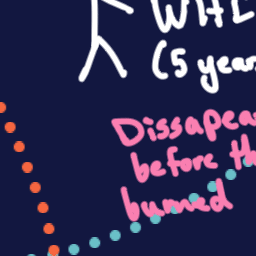 WHE
(5 years
Dissapea
before th
burned